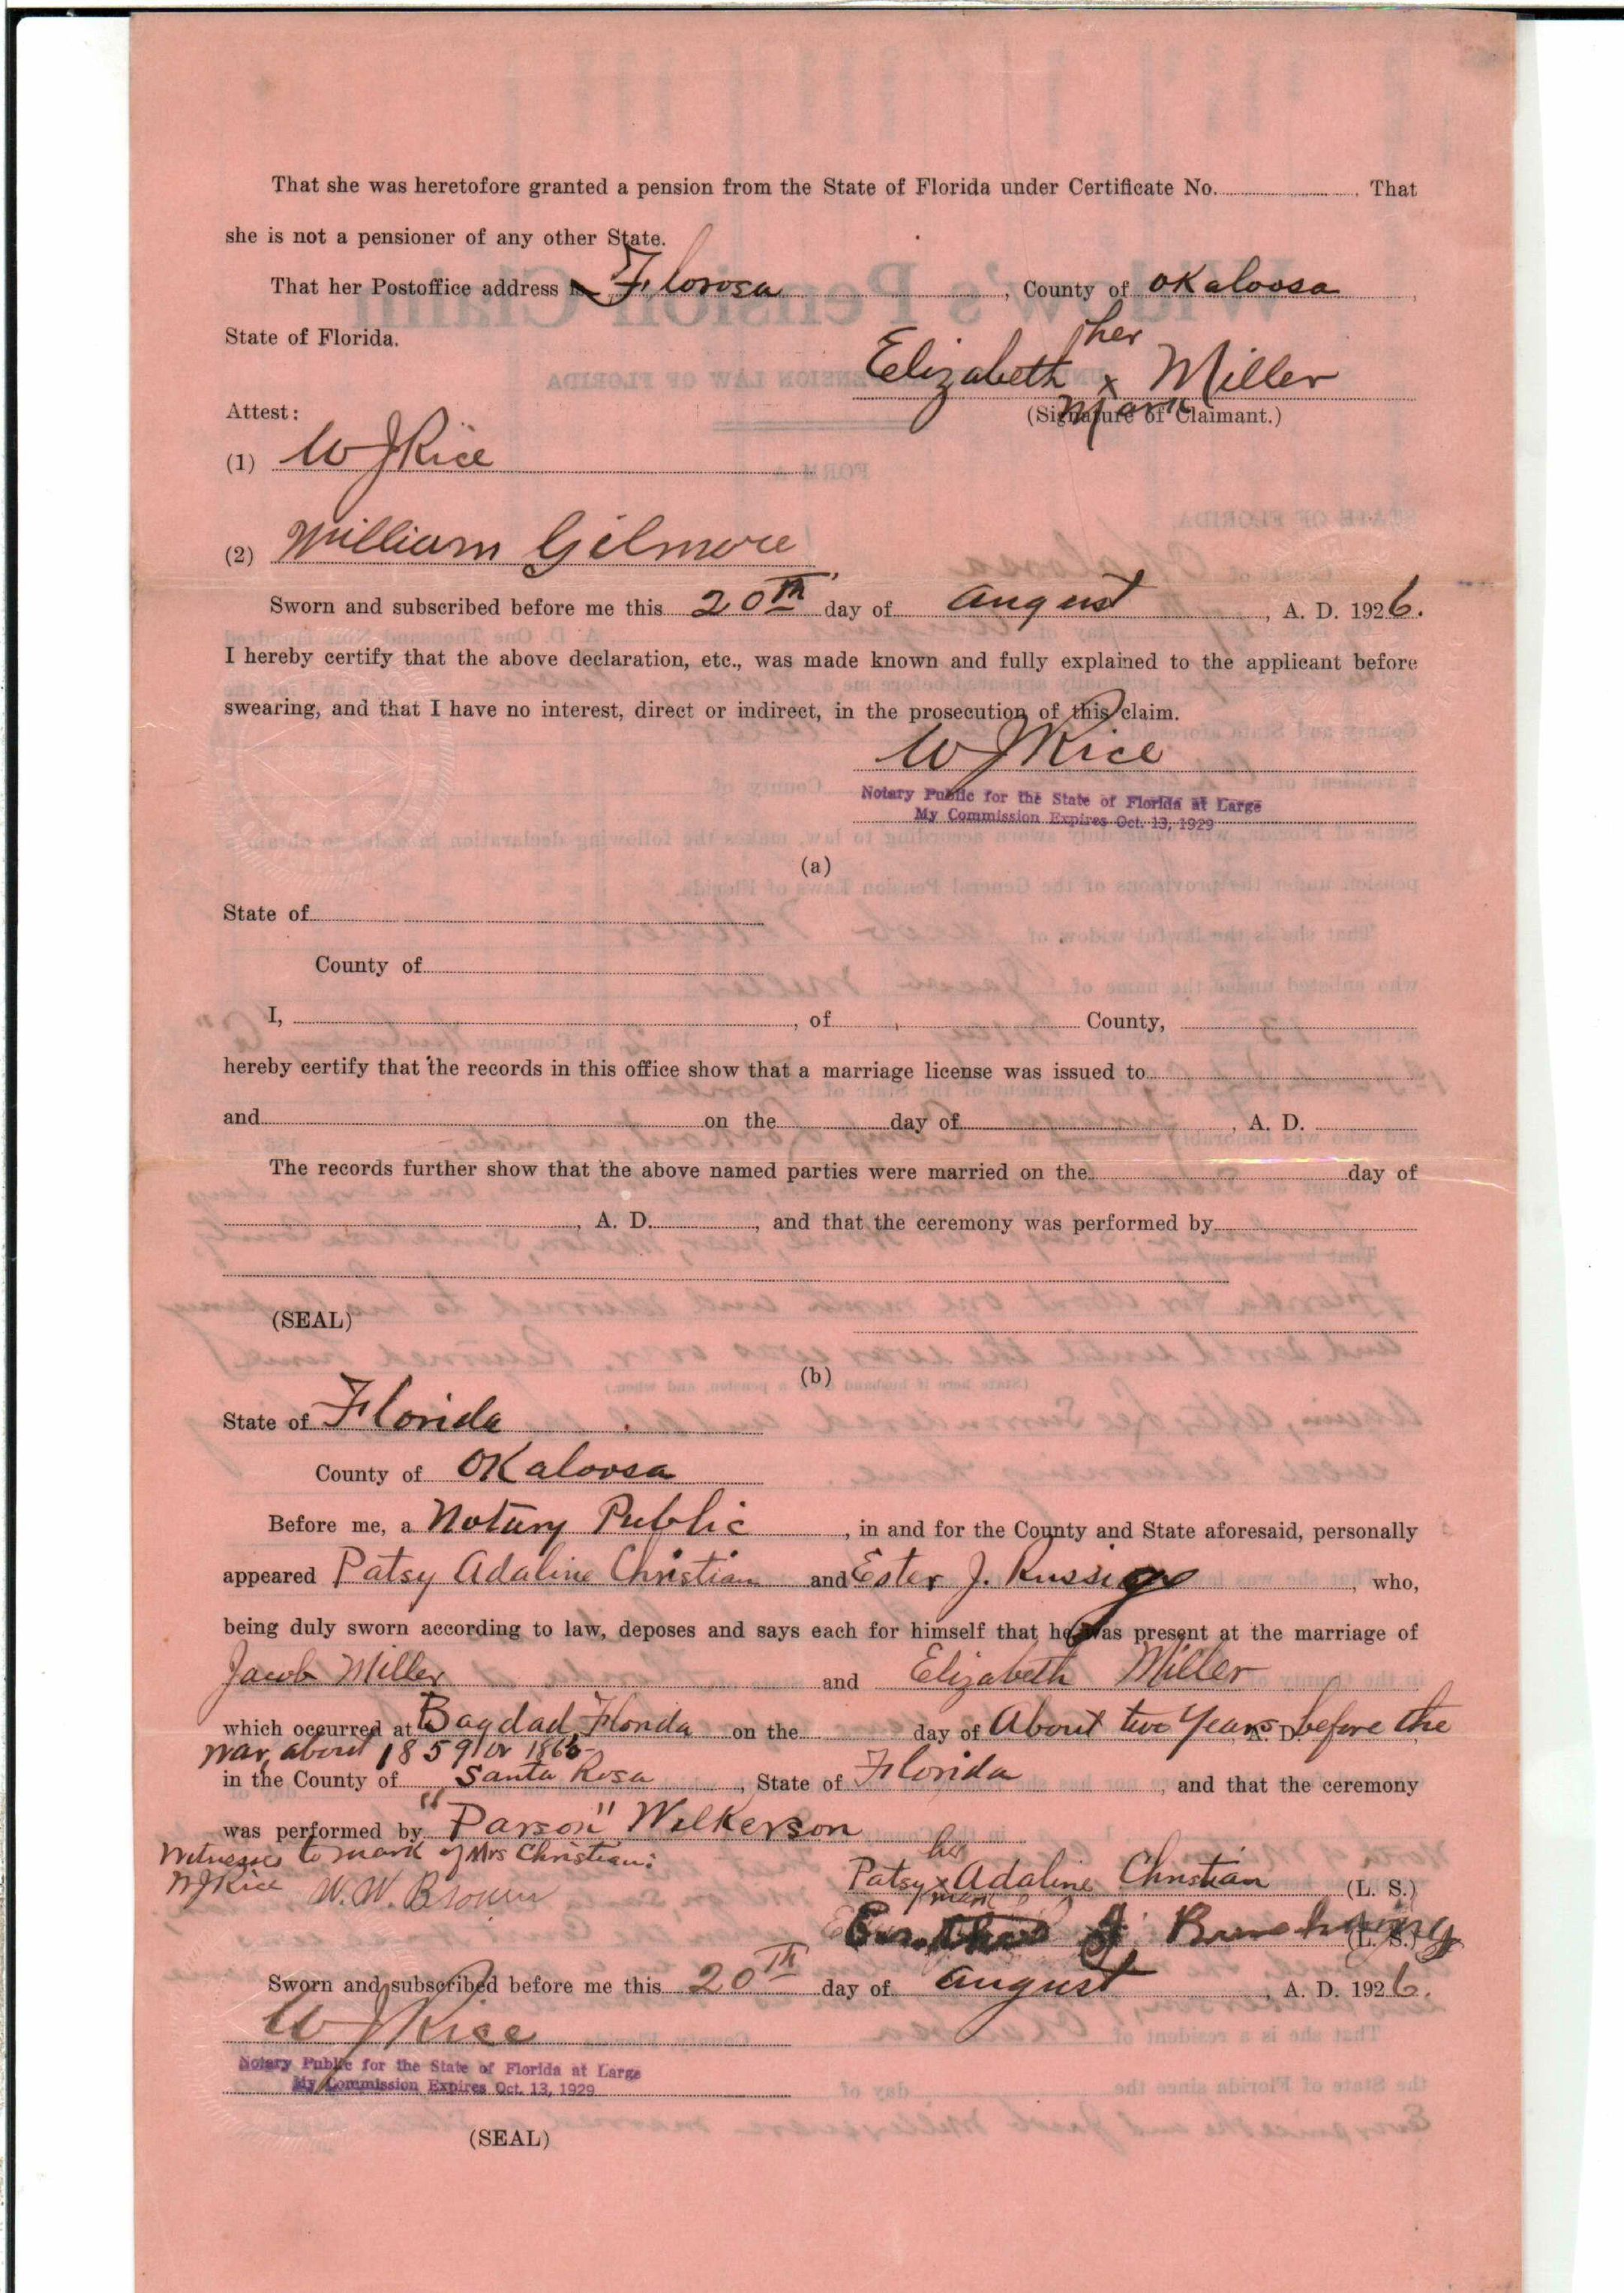 That she was heretofore granted a pension from the State of Florida under Certificate No. . That
she is not a pensioner of any other State.
That her Postoffice address is Florosa , County of Okaloosa ,
State of Florida.
her
Elizabeth x Miller
mark
Attest:
(Signature of Claimant.)
(1) W J Rice
(2) William Gilmore
Sworn and subscribed before me this 20th day of August , A. D. 1926.
I hereby certify that the above declaration, etc., was made known and fully explained to the applicant before
swearing, and that I have no interest, direct or indirect, in the prosecution of this claim.
W J Rice
Notary Public for the State of Florida at Large
My Commission Expires Oct. 13, 1929
(a)
State of
County of
I, , of County,
hereby certify that the records in this office show that a marriage license was issued to
and on the day of , A. D.
The records further show that the above named parties were married on the day of
, A. D. , and that the ceremony was performed by
(SEAL)
(b)
State of Florida
County of Okaloosa
Before me, a Notary Public , in and for the County and State aforesaid, personally
appeared Patsy Adaline Christian and Ester J. , who,
being duly sworn according to law, deposes and says each for himself that he was present at the marriage of
Jacob Miller and Elizabeth Miller
which occurred at Bagdad, Florida on the day of About two years A. D. before the
war, about 1859 or 1860
in the County of Santa Rosa , State of Florida , and that the ceremony
was performed by "Parson" Wilkerson
Witnesses to mark of Mrs Christian:
her
W J Rice W. W. Brown
Patsy x Adaline Christian (L. S.)
mark
J. (L. S.)
Sworn and subscribed before me this 20th day of August , A. D. 1926.
W J Rice
Notary Public for the State of Florida at Large
My Commission Expires Oct. 13, 1929
(SEAL)